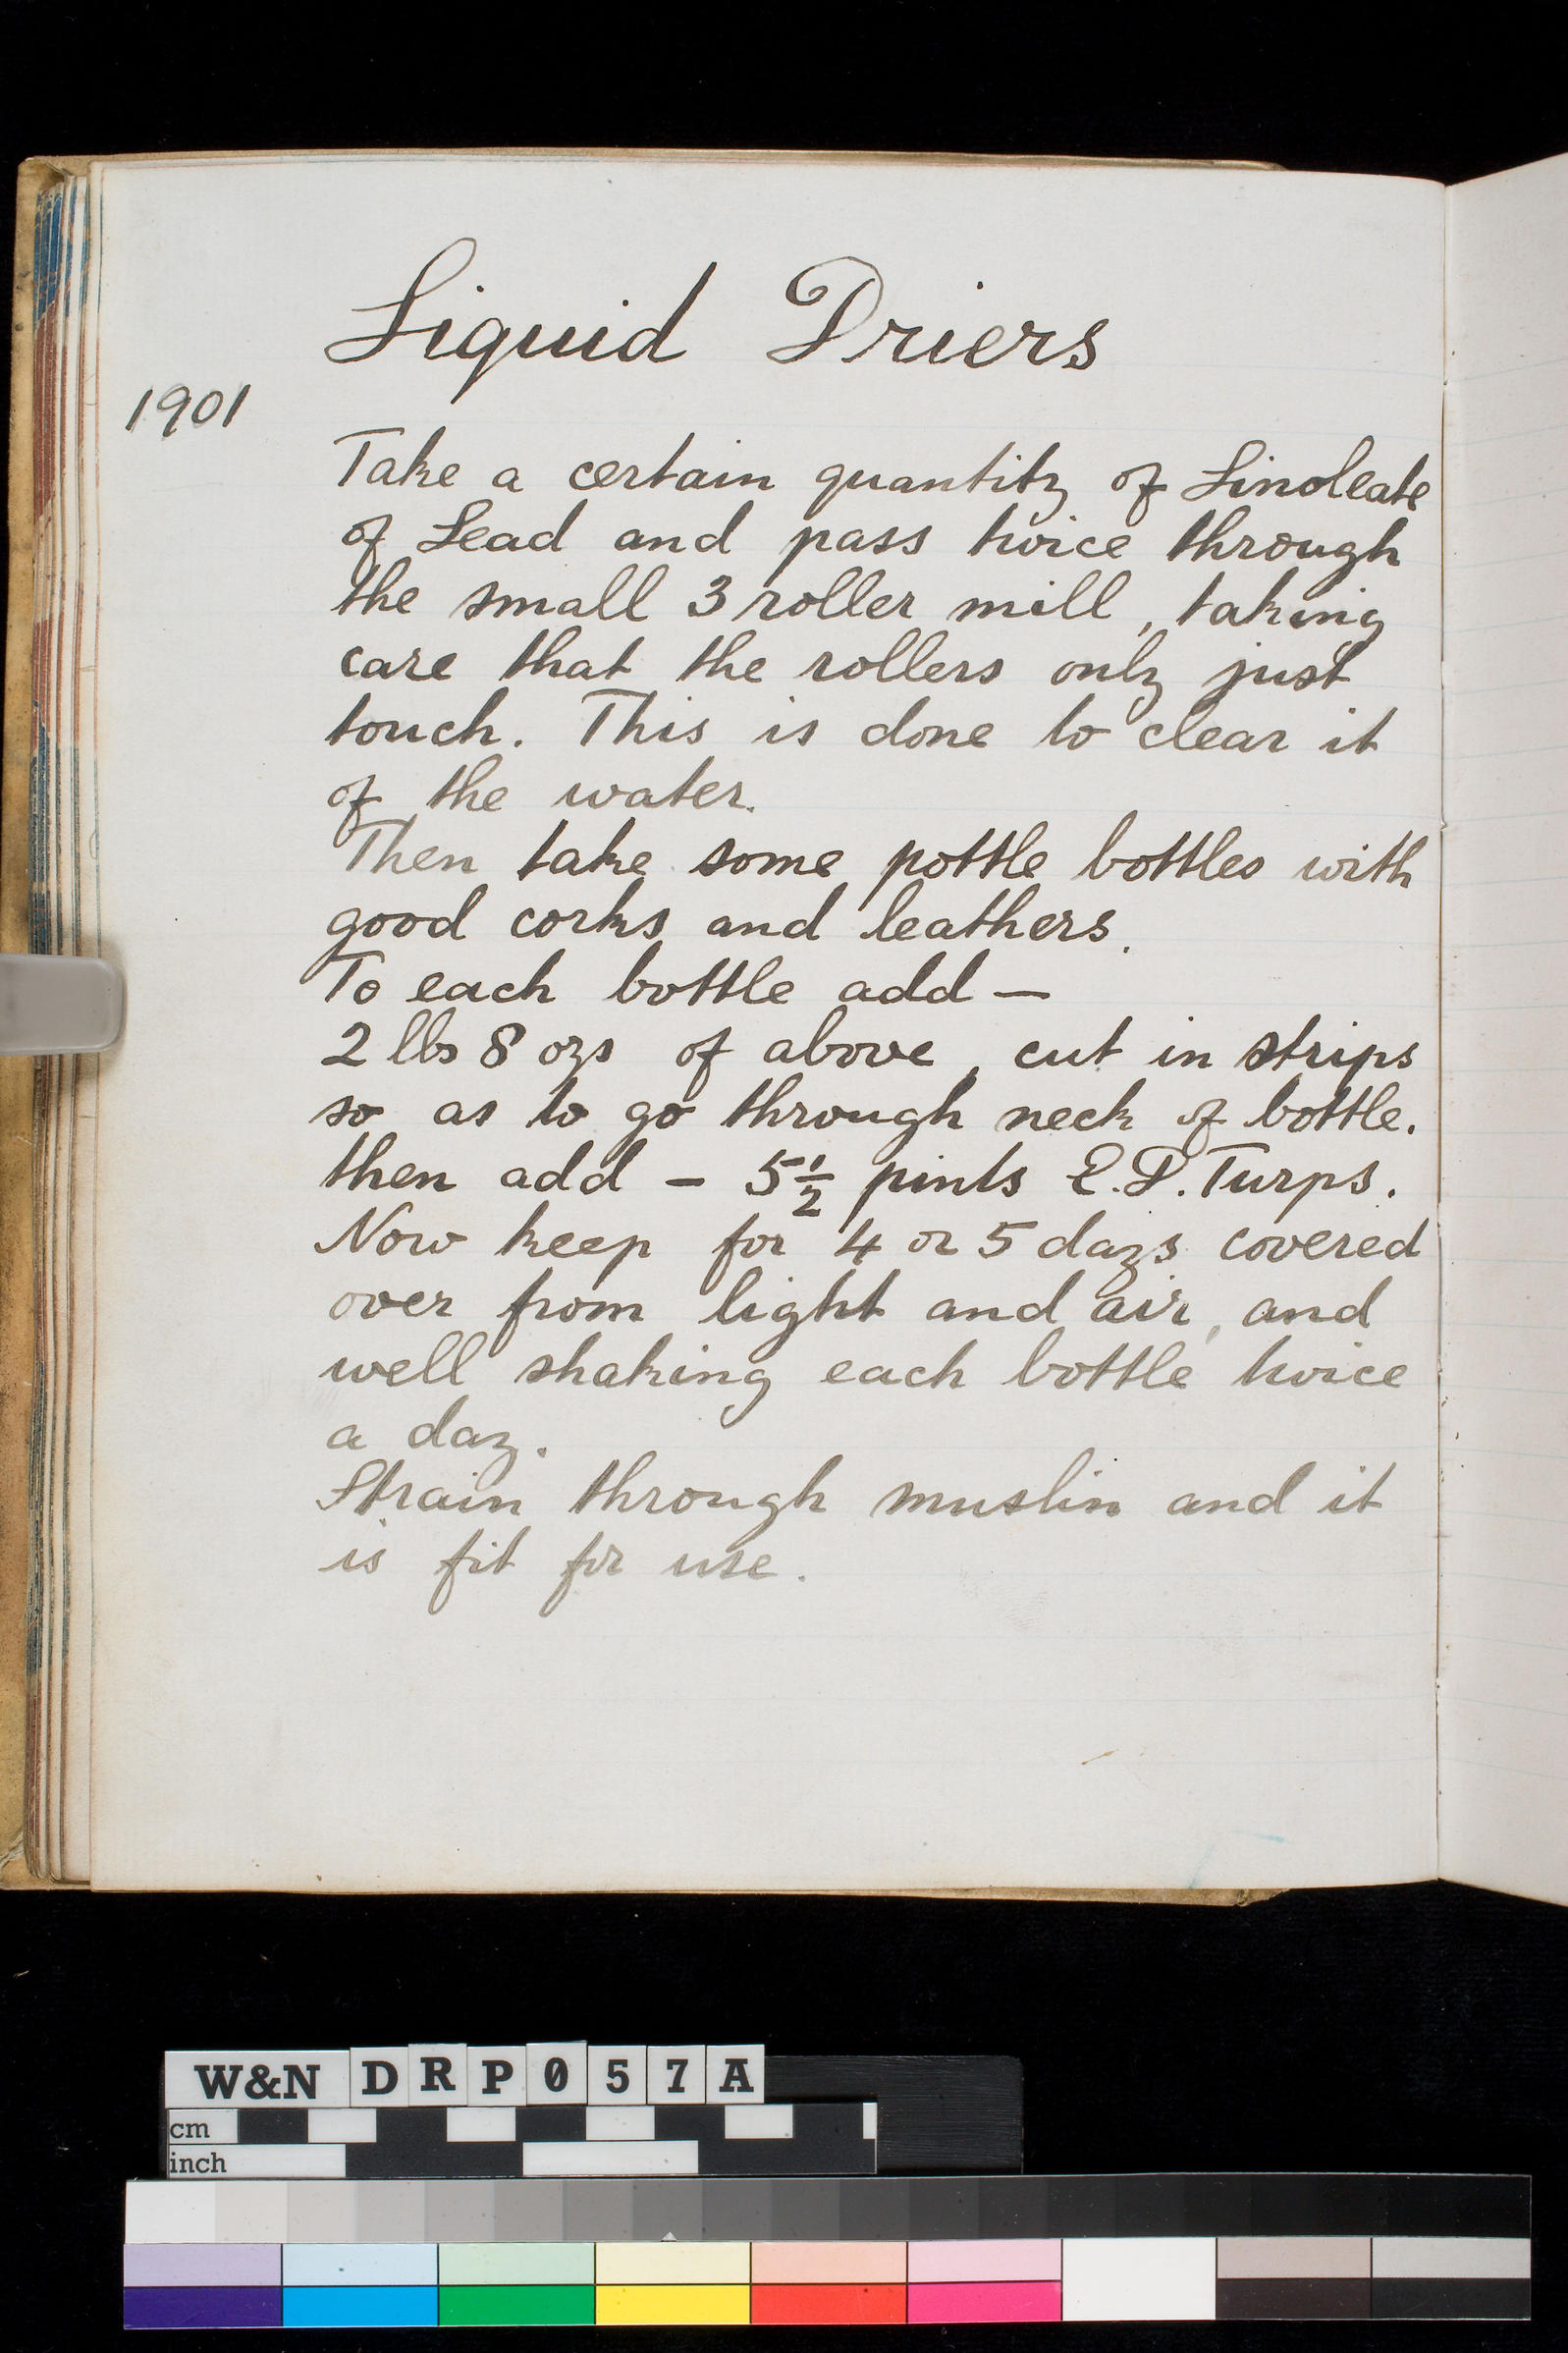 Liquid Driers
1901
Take a certain quantity of Linoleate
of Lead and pass twice through
the small 3 roller mill, taking
care that the rollers only just
touch. This is done to clear it
of the water.
Then take some pottle bottles with
good corks and leathers.
To each bottle add —
2 lbs 8 ozs of above, cut in strips
so as to go through neck of bottle.
then add — 5½ pints E.D. Turps.
Now keep for 4 or 5 days covered
over from light and air, and
well shaking each bottle twice
a day.
Strain through muslin and it
is fit for use.
W&N DRP057A
cm
inch